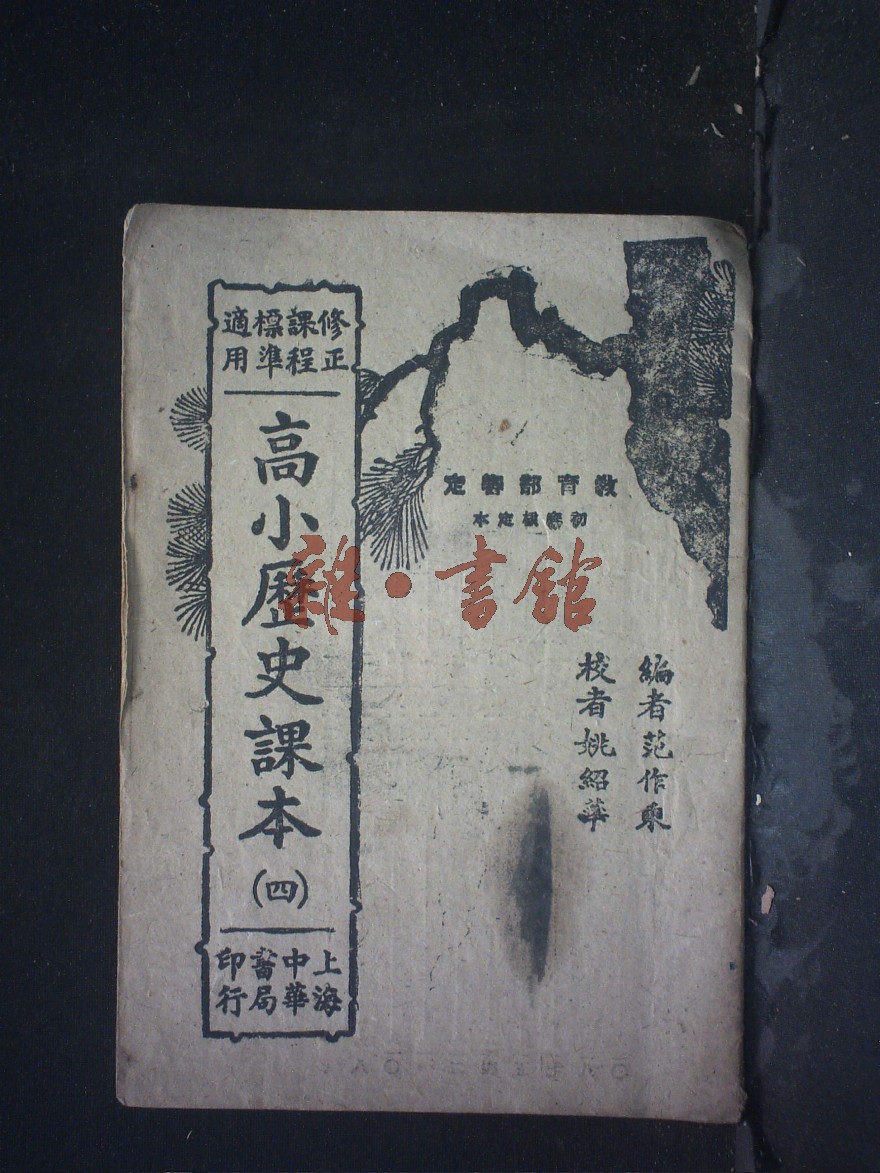 修正課程標準適用
高小歷史課本
(四)
上海中華書局印行
教育部審定
初審核定本
編者范作乘
校者姚紹華
雜·書館